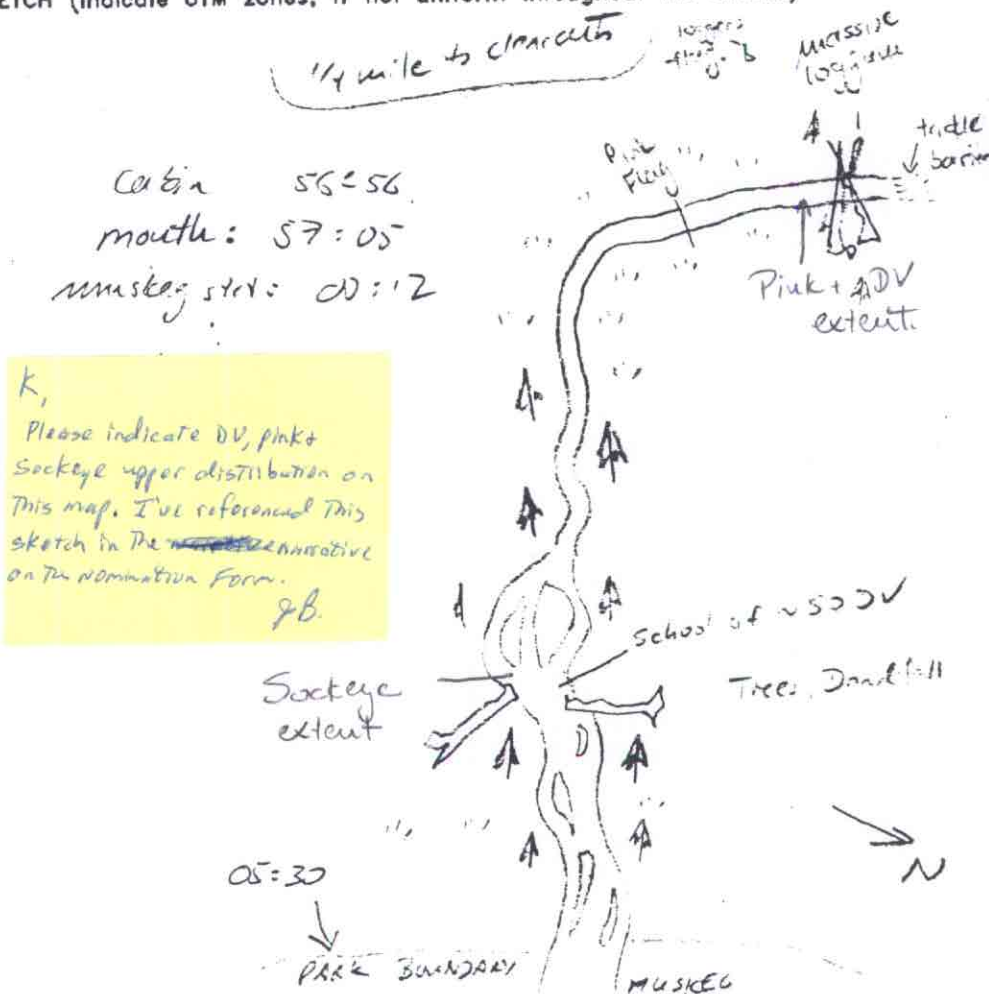 ETCH (indicate UTM zones, if not uniform throughout
1/4 mile to clearcuts
loggers
massive
logjam
Pink
Flag
barrier
Cabin 56:56
mouth: 57:05
muskeg strt: 00:12
Pink + DV
extent.
K,
Please indicate DV, pink +
Sockeye upper distribution on
This map. I've referenced This
sketch in The narrative
on The nomination Form.
JB.
School of ~ 50 DV
Sockeye
extent
Trees, Deadfall
05:30
N
PARK BOUNDARY
MUSKEG